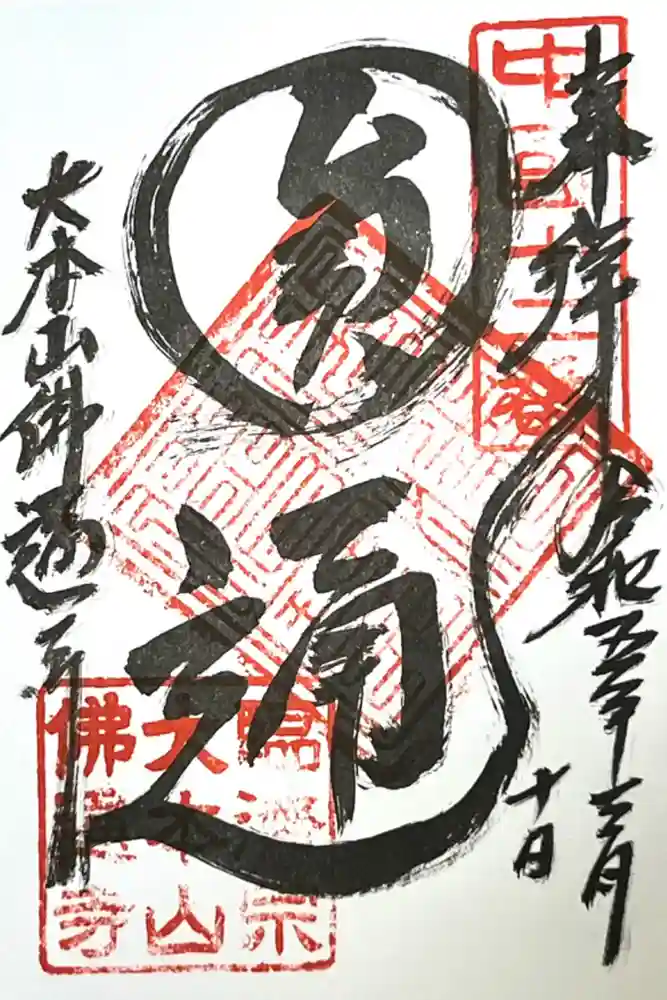 奉拝
令和五年十二月
十日
中国十二番
圓通
大本山佛通寺
臨濟宗
大本山
佛通寺